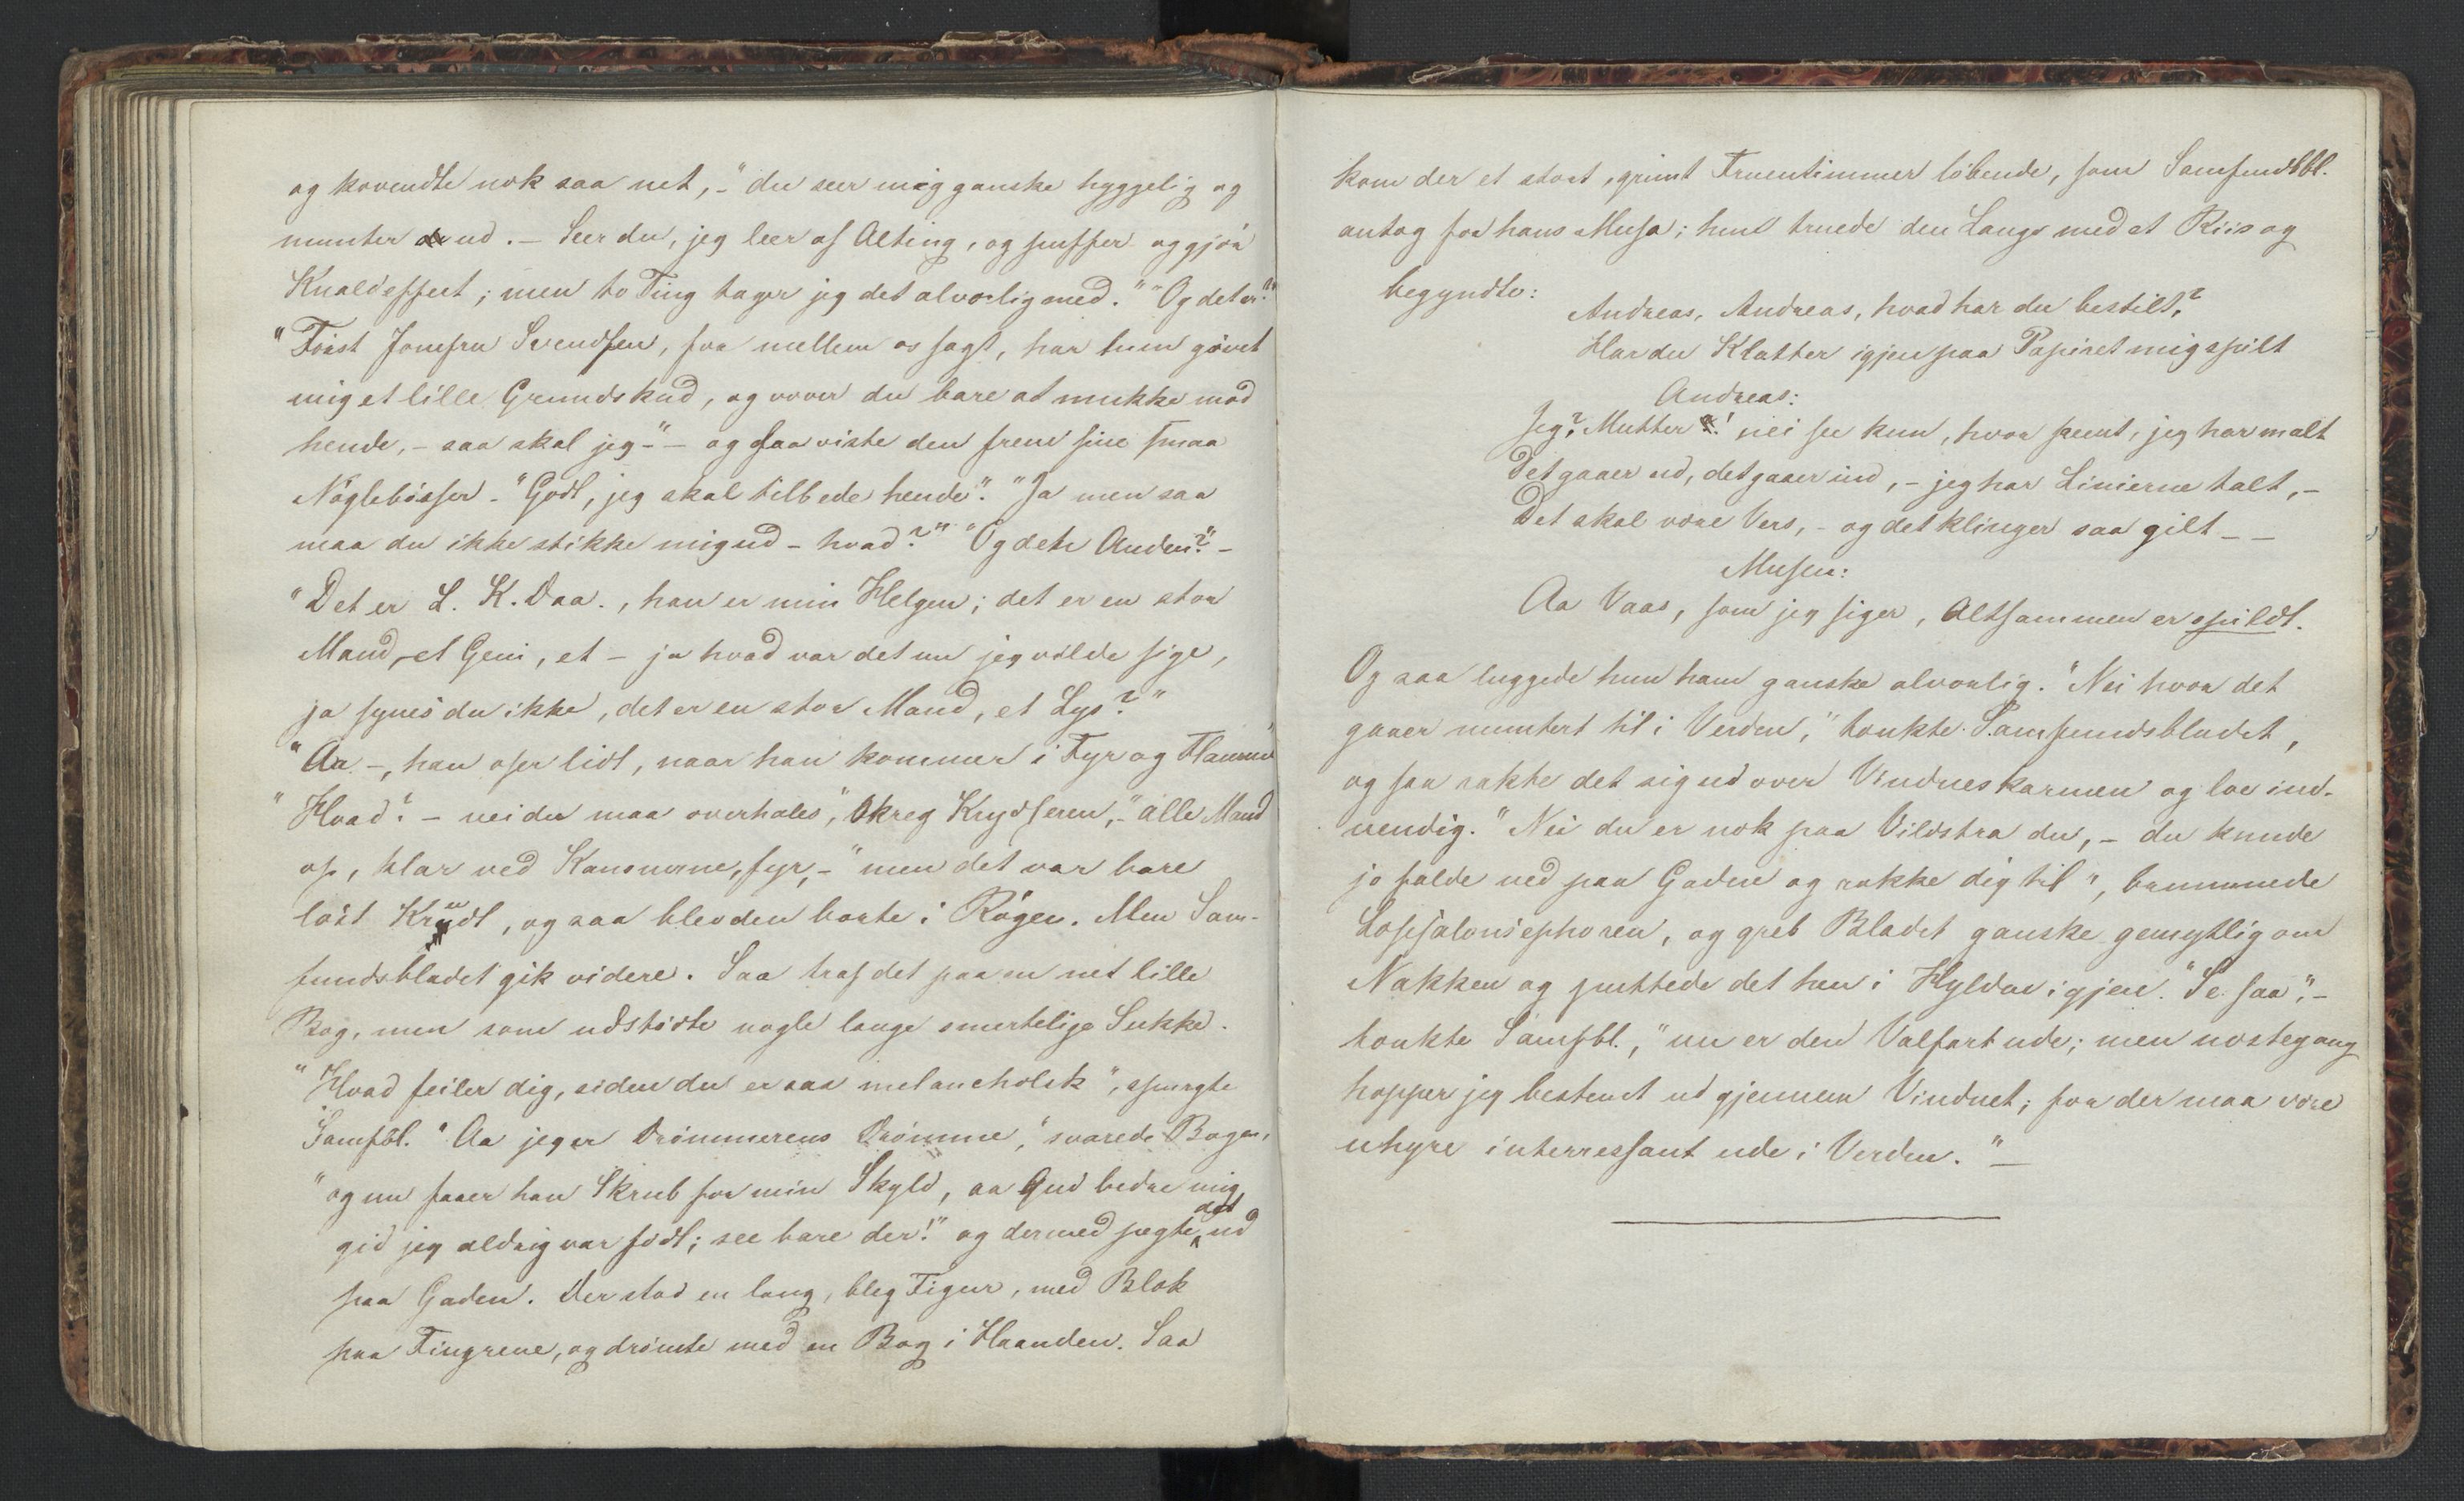 og kovendte nok saa net, - "du seer mig ganske hyggelig og
munter ud. - Seer du, jeg leer af Alting, og puffer og gjör
Knaldeffect; men to Ting tager jeg det alvorlig med." "Og det er?"
"Först Jomfru Svendsen, for mellem os sagt, har hun givet
mig et lille Grundskud, og vover du bare at mukke mod
hende, - saa skal jeg -" - og saa viste den frem sine smaa
Nöglebösser - "Godt, jeg skal tilbede hende". "Ja men saa
maa du ikke stikke mig ud - hvad?" "Og dete Anden?" -
"Det er L. K. Daa., han er min Helgen; det er en stor
Mand, et Geni, et - ja hvad var det nu jeg vilde sige,
ja synes du ikke, det er en stor Mand, et Lys?"
"Aa -, han oser lidt, naar han kommer i Fyr og Flamme"
"Hvad? - nei du maa overhales", skreg Krydseren, - "alle Mand
op, klar ved Kanonerne, fyr, -" men det var bare
löst Krudt, og saa blev den borte i Rögen. Men Sam-
fundsbladet gik videre. Saa traf det paa en net lille
Bog, men som udstödte nogle lange smertelige Sukke.
"Hvad feiler dig, siden du er saa melancholsk", spurgte
Samfbl. "Aa jeg er Drömmerens Drömme," svarede Bogen,
"og nu faaer han Skrub for min Skyld, aa Gud bedre mig,
gid jeg aldrig var födt; see bare der!" og dermed pegte det ud
paa Gaden. Der stod en lang, bleg Figur, med Blæk
paa Fingrene, og drömte med en Bog i Haanden. Saa
kom der et stort, grimt Fruentimmer löbende, som Samfundsbl.
antog for hans Musa; hun truede den Lange med et Riis og
begyndte:
Andreas, Andreas, hvad har du bestilt?
Har du Klatter igjen paa Papiret mig spilt
Andreas:
Jeg? Mutter! nei se kun, hvor peent, jeg har malt
Det gaaer ud, det gaaer ind, - jeg har Linierne talt, -
Det skal være Vers, - og det klinger saa gilt - -
Musen:
Aa Vaas, som jeg siger, Altsammen er spildt.
Og saa luggede hun ham ganske alvorlig. "Nei hvor det
gaaer muntert til i Verden," tænkte Samfundsbladet,
og saa rakte det sig ud over Vindueskarmen og loe ind-
vendig. "Nei du er nok paa Vildstraa du, - du kunde
jo falde ned paa Gaden og rakke dig til", brummede
Læsesalonsephoren, og greb Bladet ganske gemytlig om
Nakken og puttede det hen i Hylden igjen. "Se saa", -
tænkte Samfbl., "nu er den Valfart ude; men næstegang
hopper jeg bestemt ud gjennem Vinduet; for der maa være
uhyre interressant ude i Verden." -